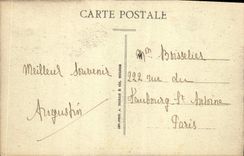 CARTE POSTALE
Meilleur Souvenir
Augustin
222 rue du
Faubourg St Antoine
Paris